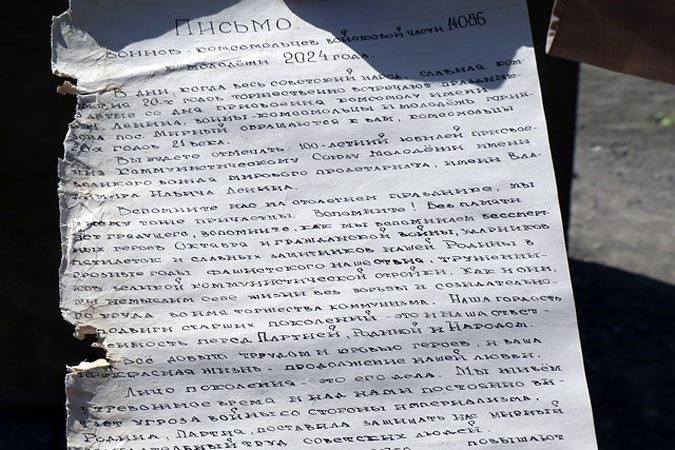 ПИСЬМО
ВОИНОВ-КОМСОМОЛЬЦЕВ ВОЙСКОВОЙ ЧАСТИ 14086
К МОЛОДЁЖИ 2024 ГОДА.
В ДНИ, КОГДА ВЕСЬ СОВЕТСКИЙ НАРОД, СЛАВНАЯ КОМ-
20-Х ГОДОВ ТОРЖЕСТВЕННО ВСТРЕЧАЮТ ПЯТИДЕСЯ-
ЛЕТИЕ СО ДНЯ ПРИСВОЕНИЯ КОМСОМОЛУ ИМЕНИ
ЛЕНИНА, ВОИНЫ-КОМСОМОЛЬЦЫ И МОЛОДЁЖЬ ГАРНИ-
ЗОНА ПОС. МИРНЫЙ ОБРАЩАЮТСЯ К ВАМ, КОМСОМОЛЬЦЫ
20-Х ГОДОВ 21 ВЕКА.
ВЫ БУДЕТЕ ОТМЕЧАТЬ 100-ЛЕТНИЙ ЮБИЛЕЙ ПРИСВОЕ-
НИЯ КОММУНИСТИЧЕСКОМУ СОЮЗУ МОЛОДЁЖИ ИМЕНИ
ВЕЛИКОГО ВОЖДЯ МИРОВОГО ПРОЛЕТАРИАТА, ИМЕНИ ВЛА-
ДИМИРА ИЛЬИЧА ЛЕНИНА.
ВСПОМНИТЕ НАС НА СТОЛЕТНЕМ ПРАЗДНИКЕ, МЫ
К НЕМУ ТОЖЕ ПРИЧАСТНЫ. ВСПОМНИТЕ! БЕЗ ПАМЯТИ
НЕТ ГРЯДУЩЕГО, ВСПОМНИТЕ, КАК МЫ ВСПОМИНАЕМ БЕССМЕРТ-
НЫХ ГЕРОЕВ ОКТЯБРЯ И ГРАЖДАНСКОЙ ВОЙНЫ, УДАРНИКОВ
ПЯТИЛЕТОК И СЛАВНЫХ ЗАЩИТНИКОВ НАШЕЙ РОДИНЫ В
ГРОЗНЫЕ ГОДЫ ФАШИСТСКОГО НАШЕСТВИЯ, ТРУЖЕНИ-
КОВ ВЕЛИКОЙ КОММУНИСТИЧЕСКОЙ СТРОЙКИ. КАК И ОНИ,
МЫ НЕ МЫСЛИМ СЕБЕ ЖИЗНИ БЕЗ БОРЬБЫ И СОЗИДАТЕЛЬНО-
ГО ТРУДА ВО ИМЯ ТОРЖЕСТВА КОММУНИЗМА. НАША ГОРДОСТЬ
ПОДВИГИ СТАРШИХ ПОКОЛЕНИЙ - ЭТО И НАША ОТВЕТ-
СТВЕННОСТЬ ПЕРЕД ПАРТИЕЙ, РОДИНОЙ И НАРОДОМ.
ВСЁ ДОБЫТО ТРУДОМ И КРОВЬЮ ГЕРОЕВ, И ВАША
ПРЕКРАСНАЯ ЖИЗНЬ - ПРОДОЛЖЕНИЕ НАШЕЙ ЛЮБВИ.
ЛИЦО ПОКОЛЕНИЯ - ЭТО ЕГО ДЕЛА. МЫ ЖИВЁМ
В ТРЕВОЖНОЕ ВРЕМЯ И НАД НАМИ ПОСТОЯННО ВИ-
ТАЕТ УГРОЗА ВОЙНЫ СО СТОРОНЫ ИМПЕРИАЛИЗМА.
РОДИНА, ПАРТИЯ, ПОСТАВИЛА ЗАЩИЩАТЬ НАС МИРНЫЙ
СОЗИДАТЕЛЬНЫЙ ТРУД СОВЕТСКИХ ЛЮДЕЙ.
ПОВЫШАЮТ